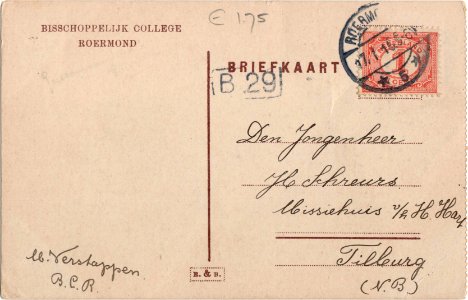 BISSCHOPPELIJK COLLEGE
ROERMOND
€ 1.75
BRIEFKAART
B 29
Den Jongenheer
H Schreurs
Missiehuis v/h H. Hart
Tilburg
(N.B)
M. Verstappen
B.C.R.
E. & B.